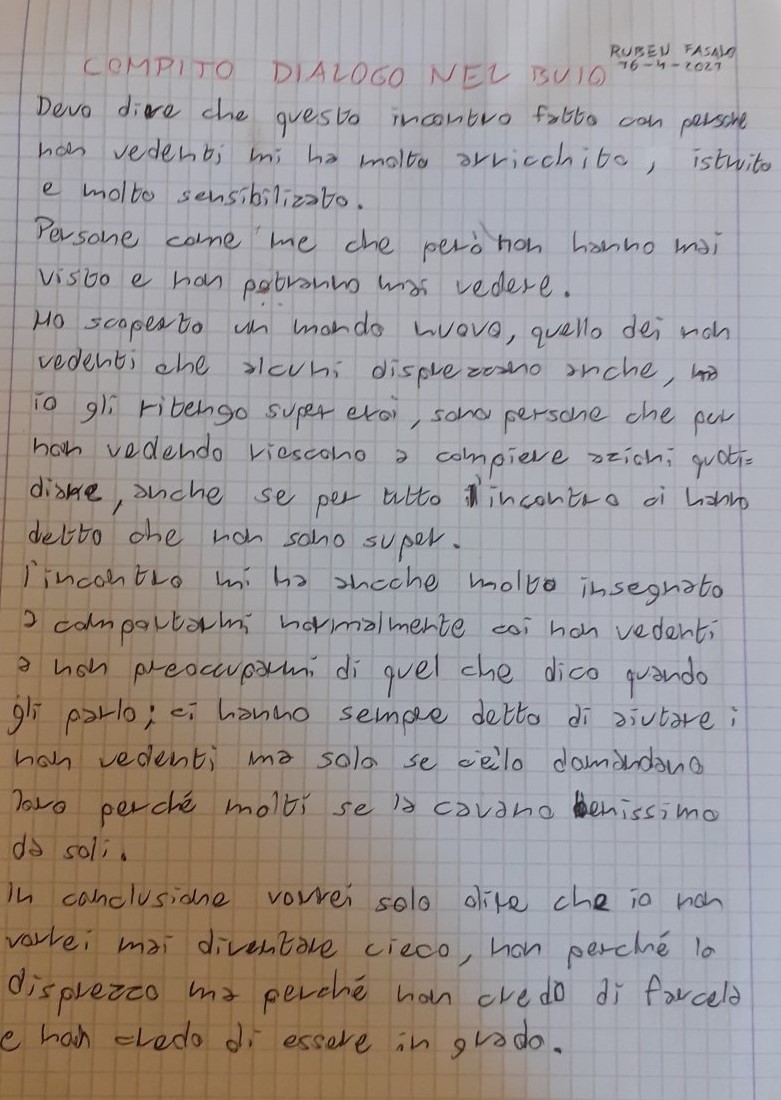 RUBEN FASANO
16-4-2021
COMPITO DIALOGO NEL BUIO
Devo dire che questo incontro fatto con persone
non vedenti mi ha molto arricchito, istruito
e molto sensibilizato.
Persone come me che però non hanno mai
visto e non potranno mai vedere.
Ho scoperto un mondo nuovo, quello dei non
vedenti che alcuni disprezzano anche, ma
io gli ritengo super eroi, sono persone che pur
non vedendo riescono a compiere azioni quoti=
diane, anche se per tutto l'incontro ci hanno
detto che non sono super.
l'incontro mi ha ancche molto insegnato
a comportarmi normalmente coi non vedenti
a non preoccuparmi di quel che dico quando
gli parlo; ci hanno sempre detto di aiutare i
non vedenti ma solo se ce'lo domandano
loro perché molti se la cavano benissimo
da soli.
In conclusione vorrei solo dire che io non
vorrei mai diventare cieco, non perché lo
disprezzo ma perché non credo di farcela
e non credo di essere in grado.